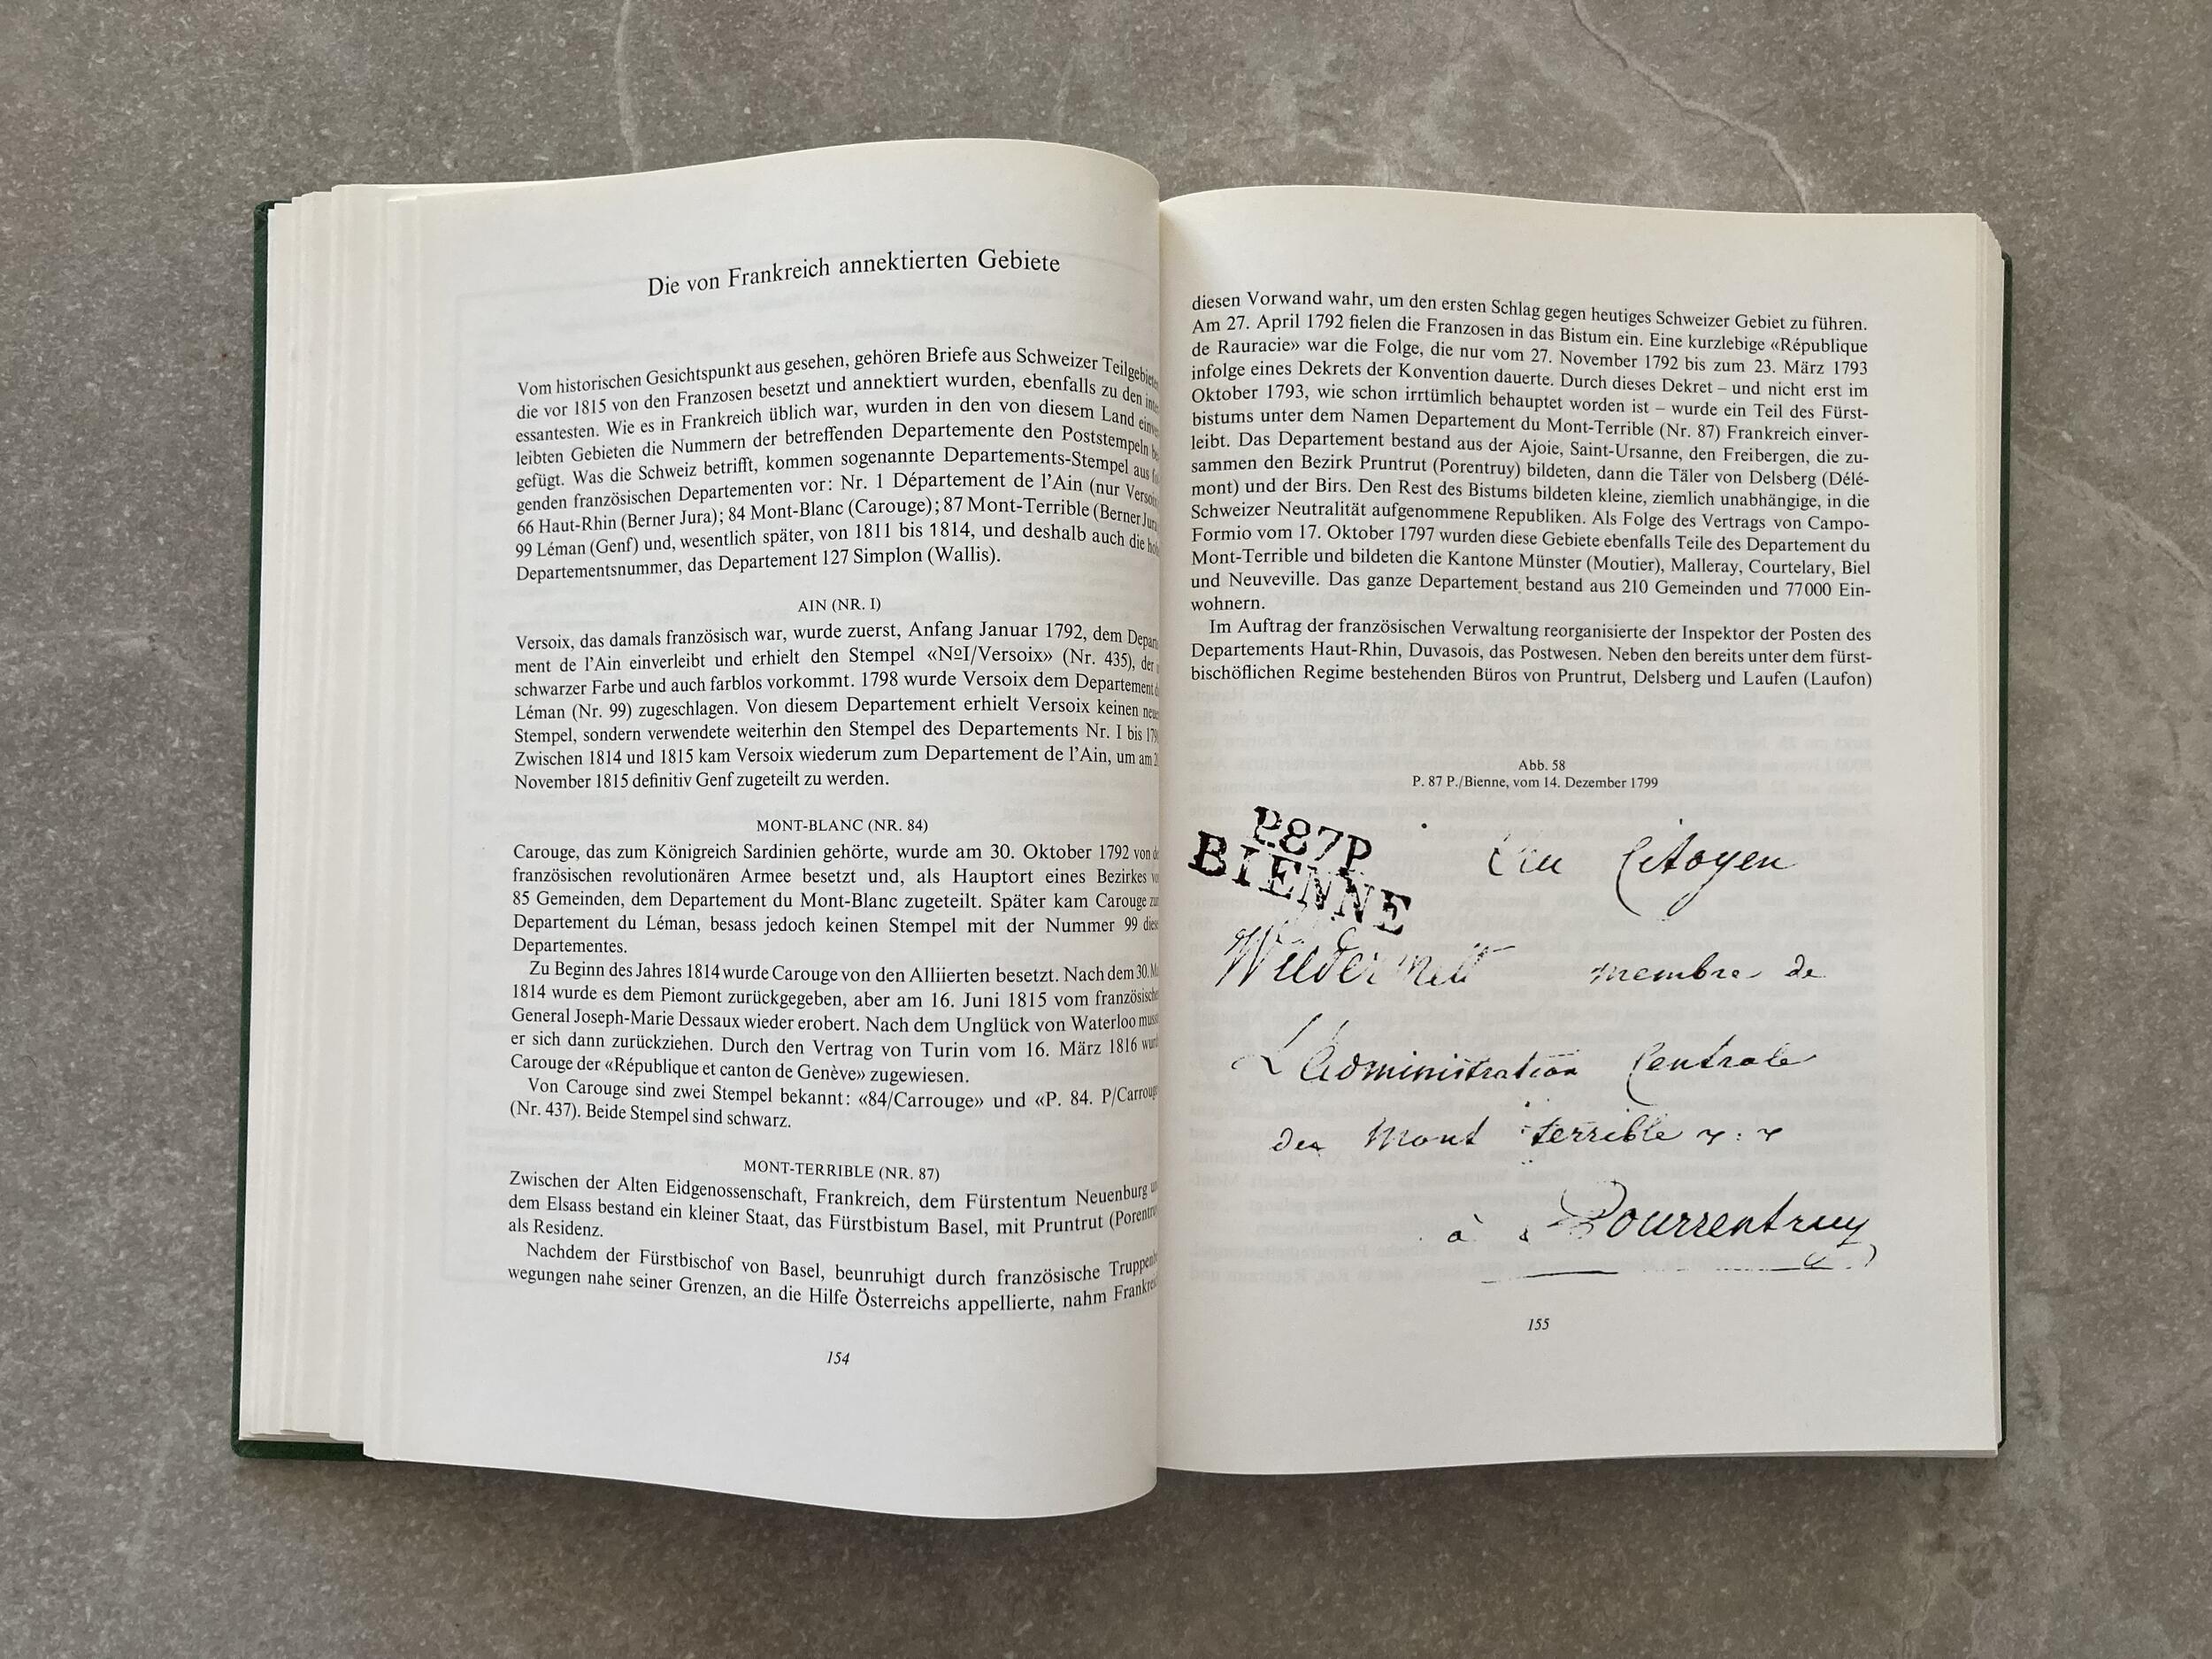 Die von Frankreich annektierten Gebiete
Vom historischen Gesichtspunkt aus gesehen, gehören Briefe aus Schweizer
die vor 1815 von den Franzosen besetzt und annektiert wurden, ebenfalls zu den
essantesten. Wie es in Frankreich üblich war, wurden in den von diesem Land
leibten Gebieten die Nummern der betreffenden Departemente den Poststempeln
gefügt. Was die Schweiz betrifft, kommen sogenannte Departements-Stempel aus
genden französischen Departementen vor: Nr. 1 Département de l'Ain (nur
66 Haut-Rhin (Berner Jura); 84 Mont-Blanc (Carouge); 87 Mont-Terrible (Berner
99 Léman (Genf) und, wesentlich später, von 1811 bis 1814, und deshalb auch die
Departementsnummer, das Departement 127 Simplon (Wallis).
AIN (NR. I)
Versoix, das damals französisch war, wurde zuerst, Anfang Januar 1792, dem
ment de l'Ain einverleibt und erhielt den Stempel «NºI/Versoix» (Nr. 435), der
schwarzer Farbe und auch farblos vorkommt. 1798 wurde Versoix dem Departement
Léman (Nr. 99) zugeschlagen. Von diesem Departement erhielt Versoix keinen
Stempel, sondern verwendete weiterhin den Stempel des Departements Nr. I bis
Zwischen 1814 und 1815 kam Versoix wiederum zum Departement de l'Ain, um am
November 1815 definitiv Genf zugeteilt zu werden.
MONT-BLANC (NR. 84)
Carouge, das zum Königreich Sardinien gehörte, wurde am 30. Oktober 1792 von
französischen revolutionären Armee besetzt und, als Hauptort eines Bezirkes
85 Gemeinden, dem Departement du Mont-Blanc zugeteilt. Später kam Carouge
Departement du Léman, besass jedoch keinen Stempel mit der Nummer 99
Departementes.
Zu Beginn des Jahres 1814 wurde Carouge von den Alliierten besetzt. Nach dem 30.
1814 wurde es dem Piemont zurückgegeben, aber am 16. Juni 1815 vom
General Joseph-Marie Dessaux wieder erobert. Nach dem Unglück von Waterloo
er sich dann zurückziehen. Durch den Vertrag von Turin vom 16. März 1816
Carouge der «République et canton de Genève» zugewiesen.
Von Carouge sind zwei Stempel bekannt: «84/Carrouge» und «P. 84. P/Carrouge
(Nr. 437). Beide Stempel sind schwarz.
MONT-TERRIBLE (NR. 87)
Zwischen der Alten Eidgenossenschaft, Frankreich, dem Fürstentum Neuenburg
dem Elsass bestand ein kleiner Staat, das Fürstbistum Basel, mit Pruntrut
als Residenz.
Nachdem der Fürstbischof von Basel, beunruhigt durch französische
wegungen nahe seiner Grenzen, an die Hilfe Österreichs appellierte, nahm
154
diesen Vorwand wahr, um den ersten Schlag gegen heutiges Schweizer Gebiet zu führen.
Am 27. April 1792 fielen die Franzosen in das Bistum ein. Eine kurzlebige «République
de Rauracie» war die Folge, die nur vom 27. November 1792 bis zum 23. März 1793
infolge eines Dekrets der Konvention dauerte. Durch dieses Dekret – und nicht erst im
Oktober 1793, wie schon irrtümlich behauptet worden ist – wurde ein Teil des Fürst-
bistums unter dem Namen Departement du Mont-Terrible (Nr. 87) Frankreich einver-
leibt. Das Departement bestand aus der Ajoie, Saint-Ursanne, den Freibergen, die zu-
sammen den Bezirk Pruntrut (Porentruy) bildeten, dann die Täler von Delsberg (Délé-
mont) und der Birs. Den Rest des Bistums bildeten kleine, ziemlich unabhängige, in die
Schweizer Neutralität aufgenommene Republiken. Als Folge des Vertrags von Campo-
Formio vom 17. Oktober 1797 wurden diese Gebiete ebenfalls Teile des Departement du
Mont-Terrible und bildeten die Kantone Münster (Moutier), Malleray, Courtelary, Biel
und Neuveville. Das ganze Departement bestand aus 210 Gemeinden und 77000 Ein-
wohnern.
Im Auftrag der französischen Verwaltung reorganisierte der Inspektor der Posten des
Departements Haut-Rhin, Duvasois, das Postwesen. Neben den bereits unter dem fürst-
bischöflichen Regime bestehenden Büros von Pruntrut, Delsberg und Laufen (Laufon)
Abb. 58
P. 87 P./Bienne, vom 14. Dezember 1799
P.87P
BIENNE
Au Citoyen
Wildermett membre de
L'Administration Centrale
du Mont terrible
à Pourrentruy
155